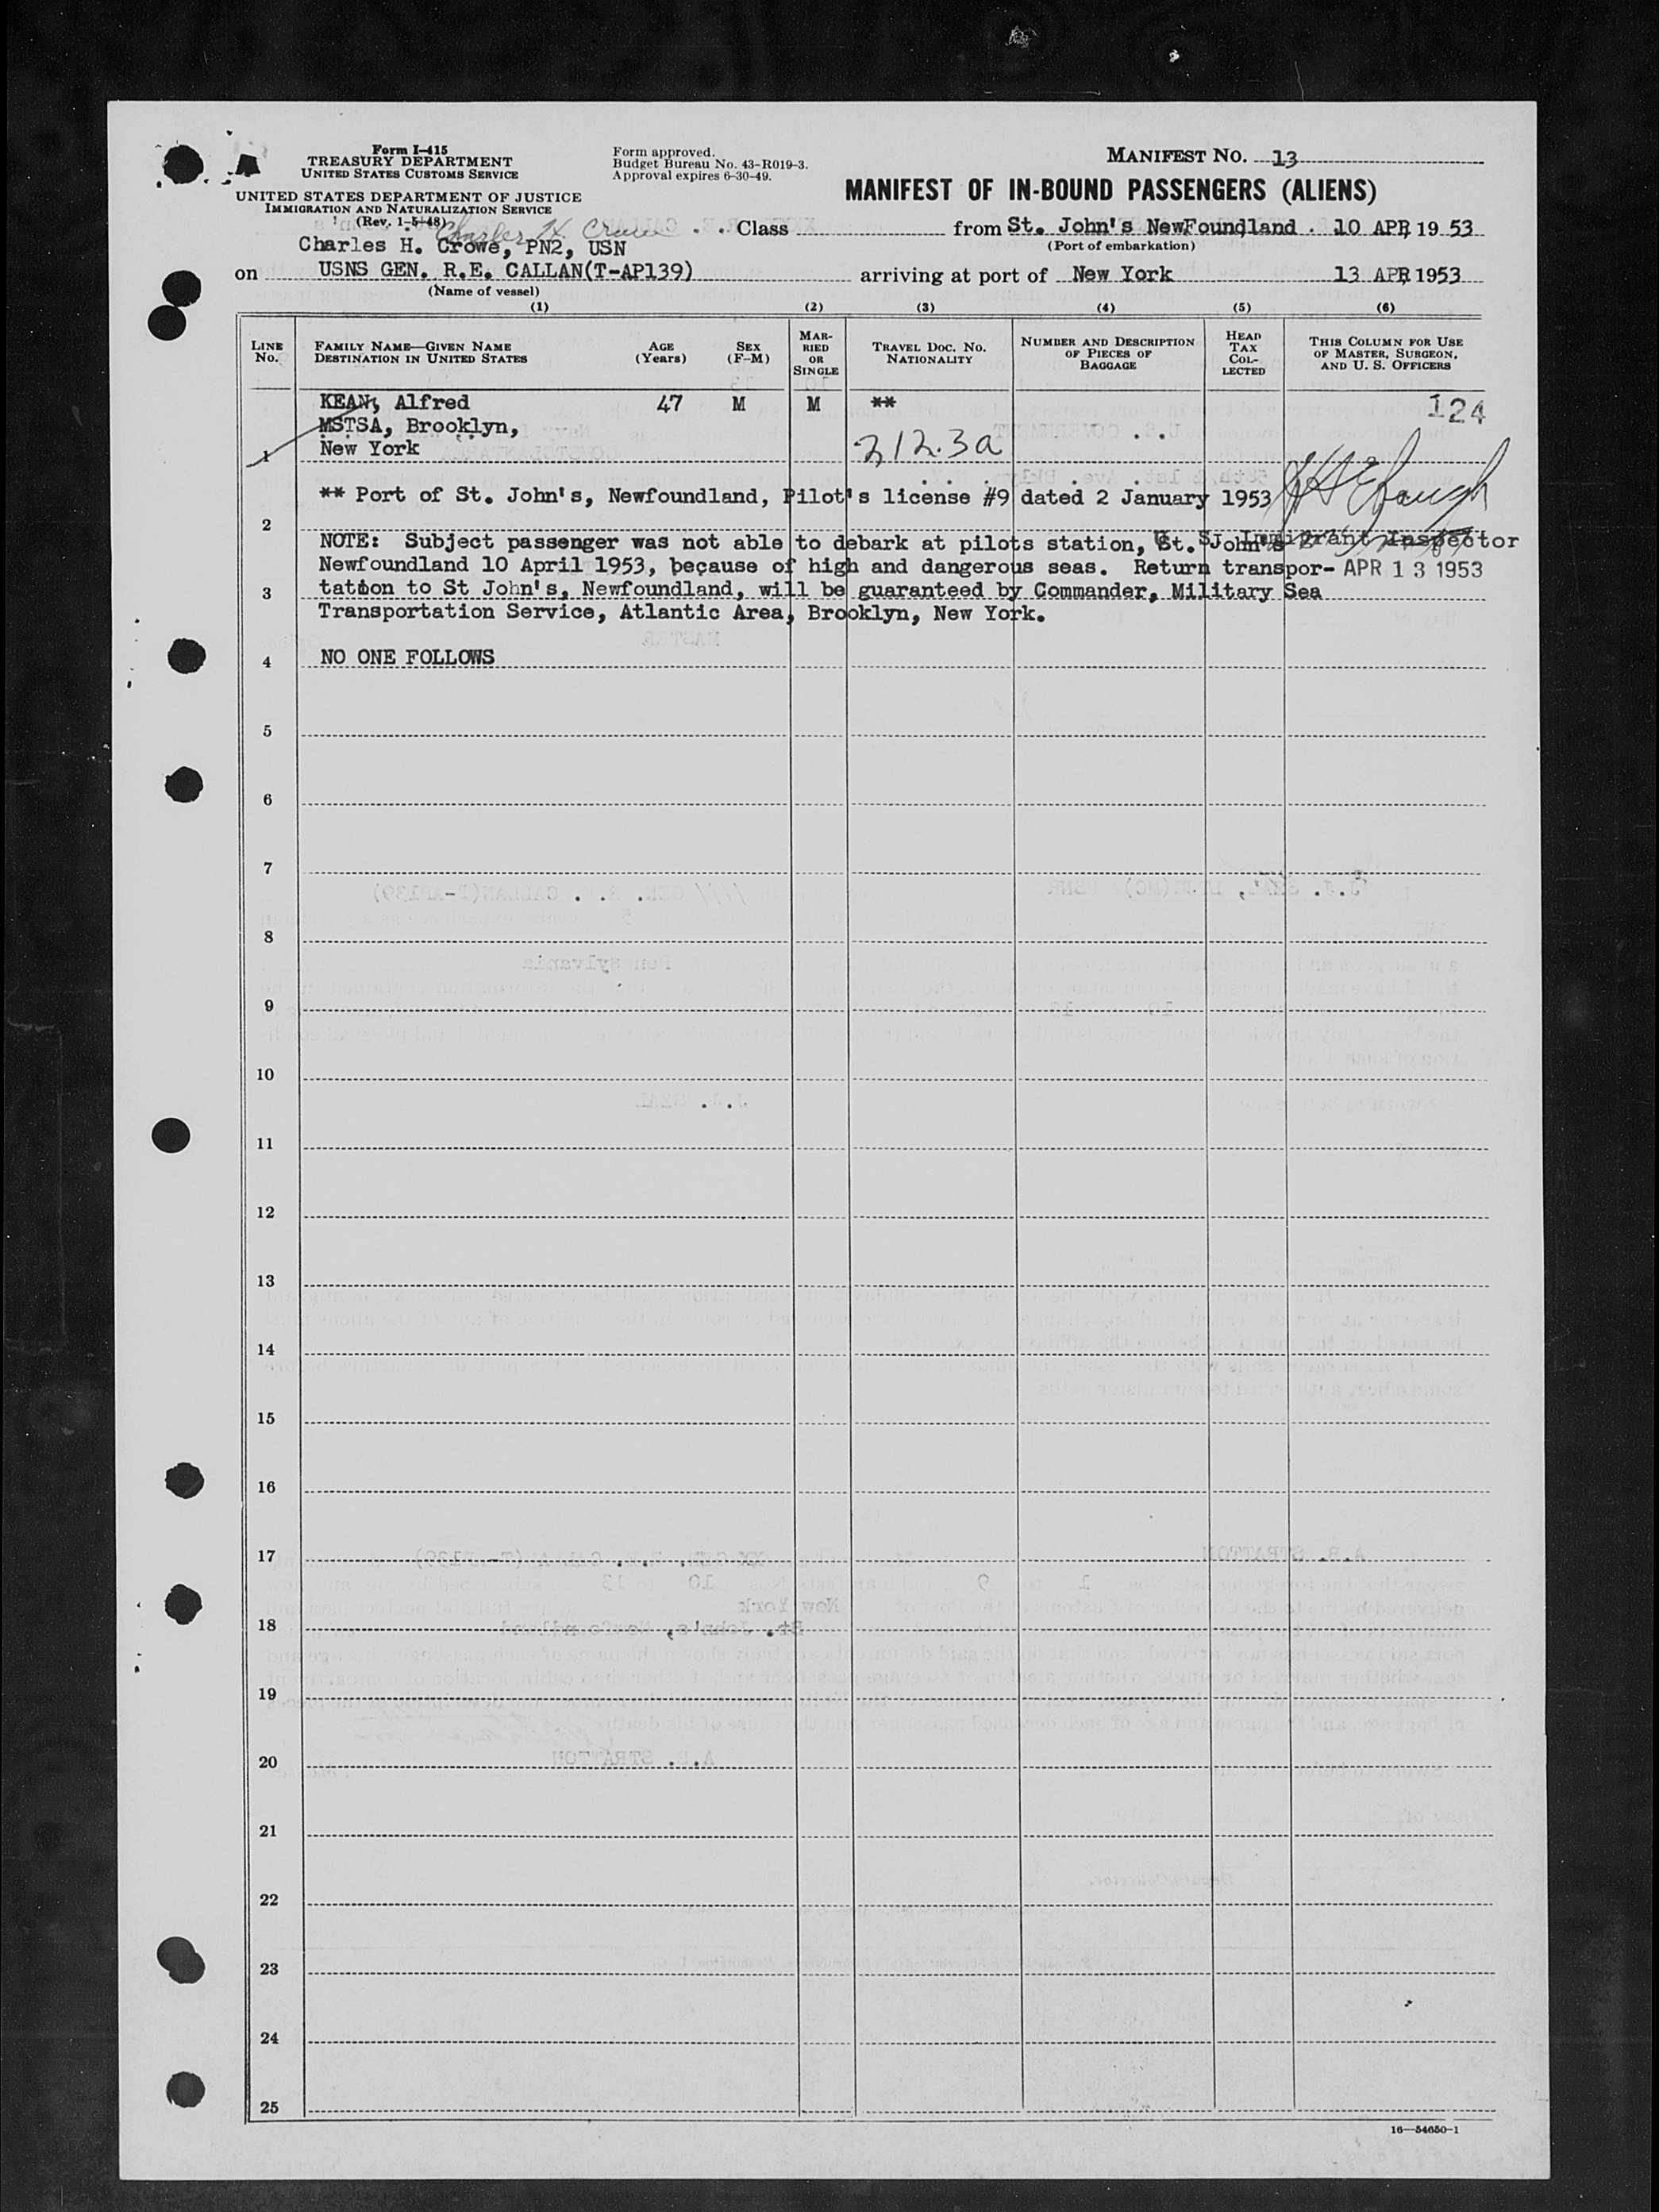 Form I-415
TREASURY DEPARTMENT
UNITED STATES CUSTOMS SERVICE
UNITED STATES DEPARTMENT OF JUSTICE
IMMIGRATION AND NATURALIZATION SERVICE
(Rev. 1-5-48)
Form approved.
Budget Bureau No. 43-R019-3.
Approval expires 6-30-49.
MANIFEST NO. 13
MANIFEST OF IN-BOUND PASSENGERS (ALIENS)
Charles H. Crowe
Charles H. Crowe, PN2, USN
Class from St. John's NewFoundland 10 APR, 19 53
(Port of embarkation)
on USNS GEN. R.E. CALLAN(T-AP139) arriving at port of New York 13 APR, 1953
(Name of vessel)
(1) (2) (3) (4) (5) (6)
LINE No.
FAMILY NAME—GIVEN NAME
DESTINATION IN UNITED STATES
AGE (Years)
SEX (F-M)
MARRIED OR SINGLE
TRAVEL DOC. NO.
NATIONALITY
NUMBER AND DESCRIPTION OF PIECES OF BAGGAGE
HEAD TAX COLLECTED
THIS COLUMN FOR USE OF MASTER, SURGEON, AND U. S. OFFICERS
KEAN, Alfred 47 M M ** 124
MSTSA, Brooklyn,
1 New York 212.3a
** Port of St. John's, Newfoundland, Pilot's license #9 dated 2 January 1953
2
NOTE: Subject passenger was not able to debark at pilots station, St. John's Immigrant Inspector
Newfoundland 10 April 1953, because of high and dangerous seas. Return transpor- APR 13 1953
3 tation to St John's, Newfoundland, will be guaranteed by Commander, Military Sea
Transportation Service, Atlantic Area, Brooklyn, New York.
4 NO ONE FOLLOWS
5
6
7
8
9
10
11
12
13
14
15
16
17
18
19
20
21
22
23
24
25
16—54650-1